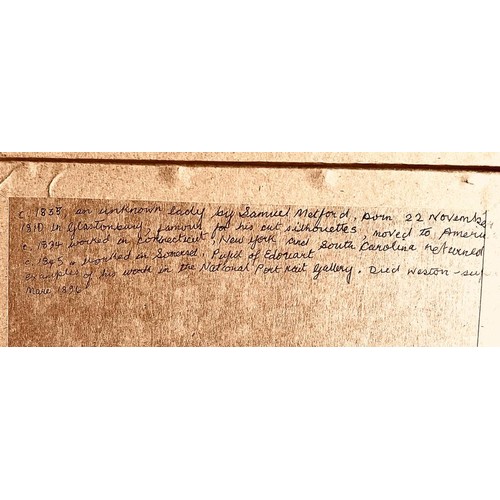 c. 1838, an unknown lady by Samuel Metford, born 22 November
1810 in Glastonbury, famous for his cut silhouettes, moved to Ameri
c. 1834 worked in Connecticut, New York and South Carolina returned
1845. worked in Somerset, Pupil of Edouart.
examples of his work in the National Portrait Gallery. Died Weston-su
Mare 1896